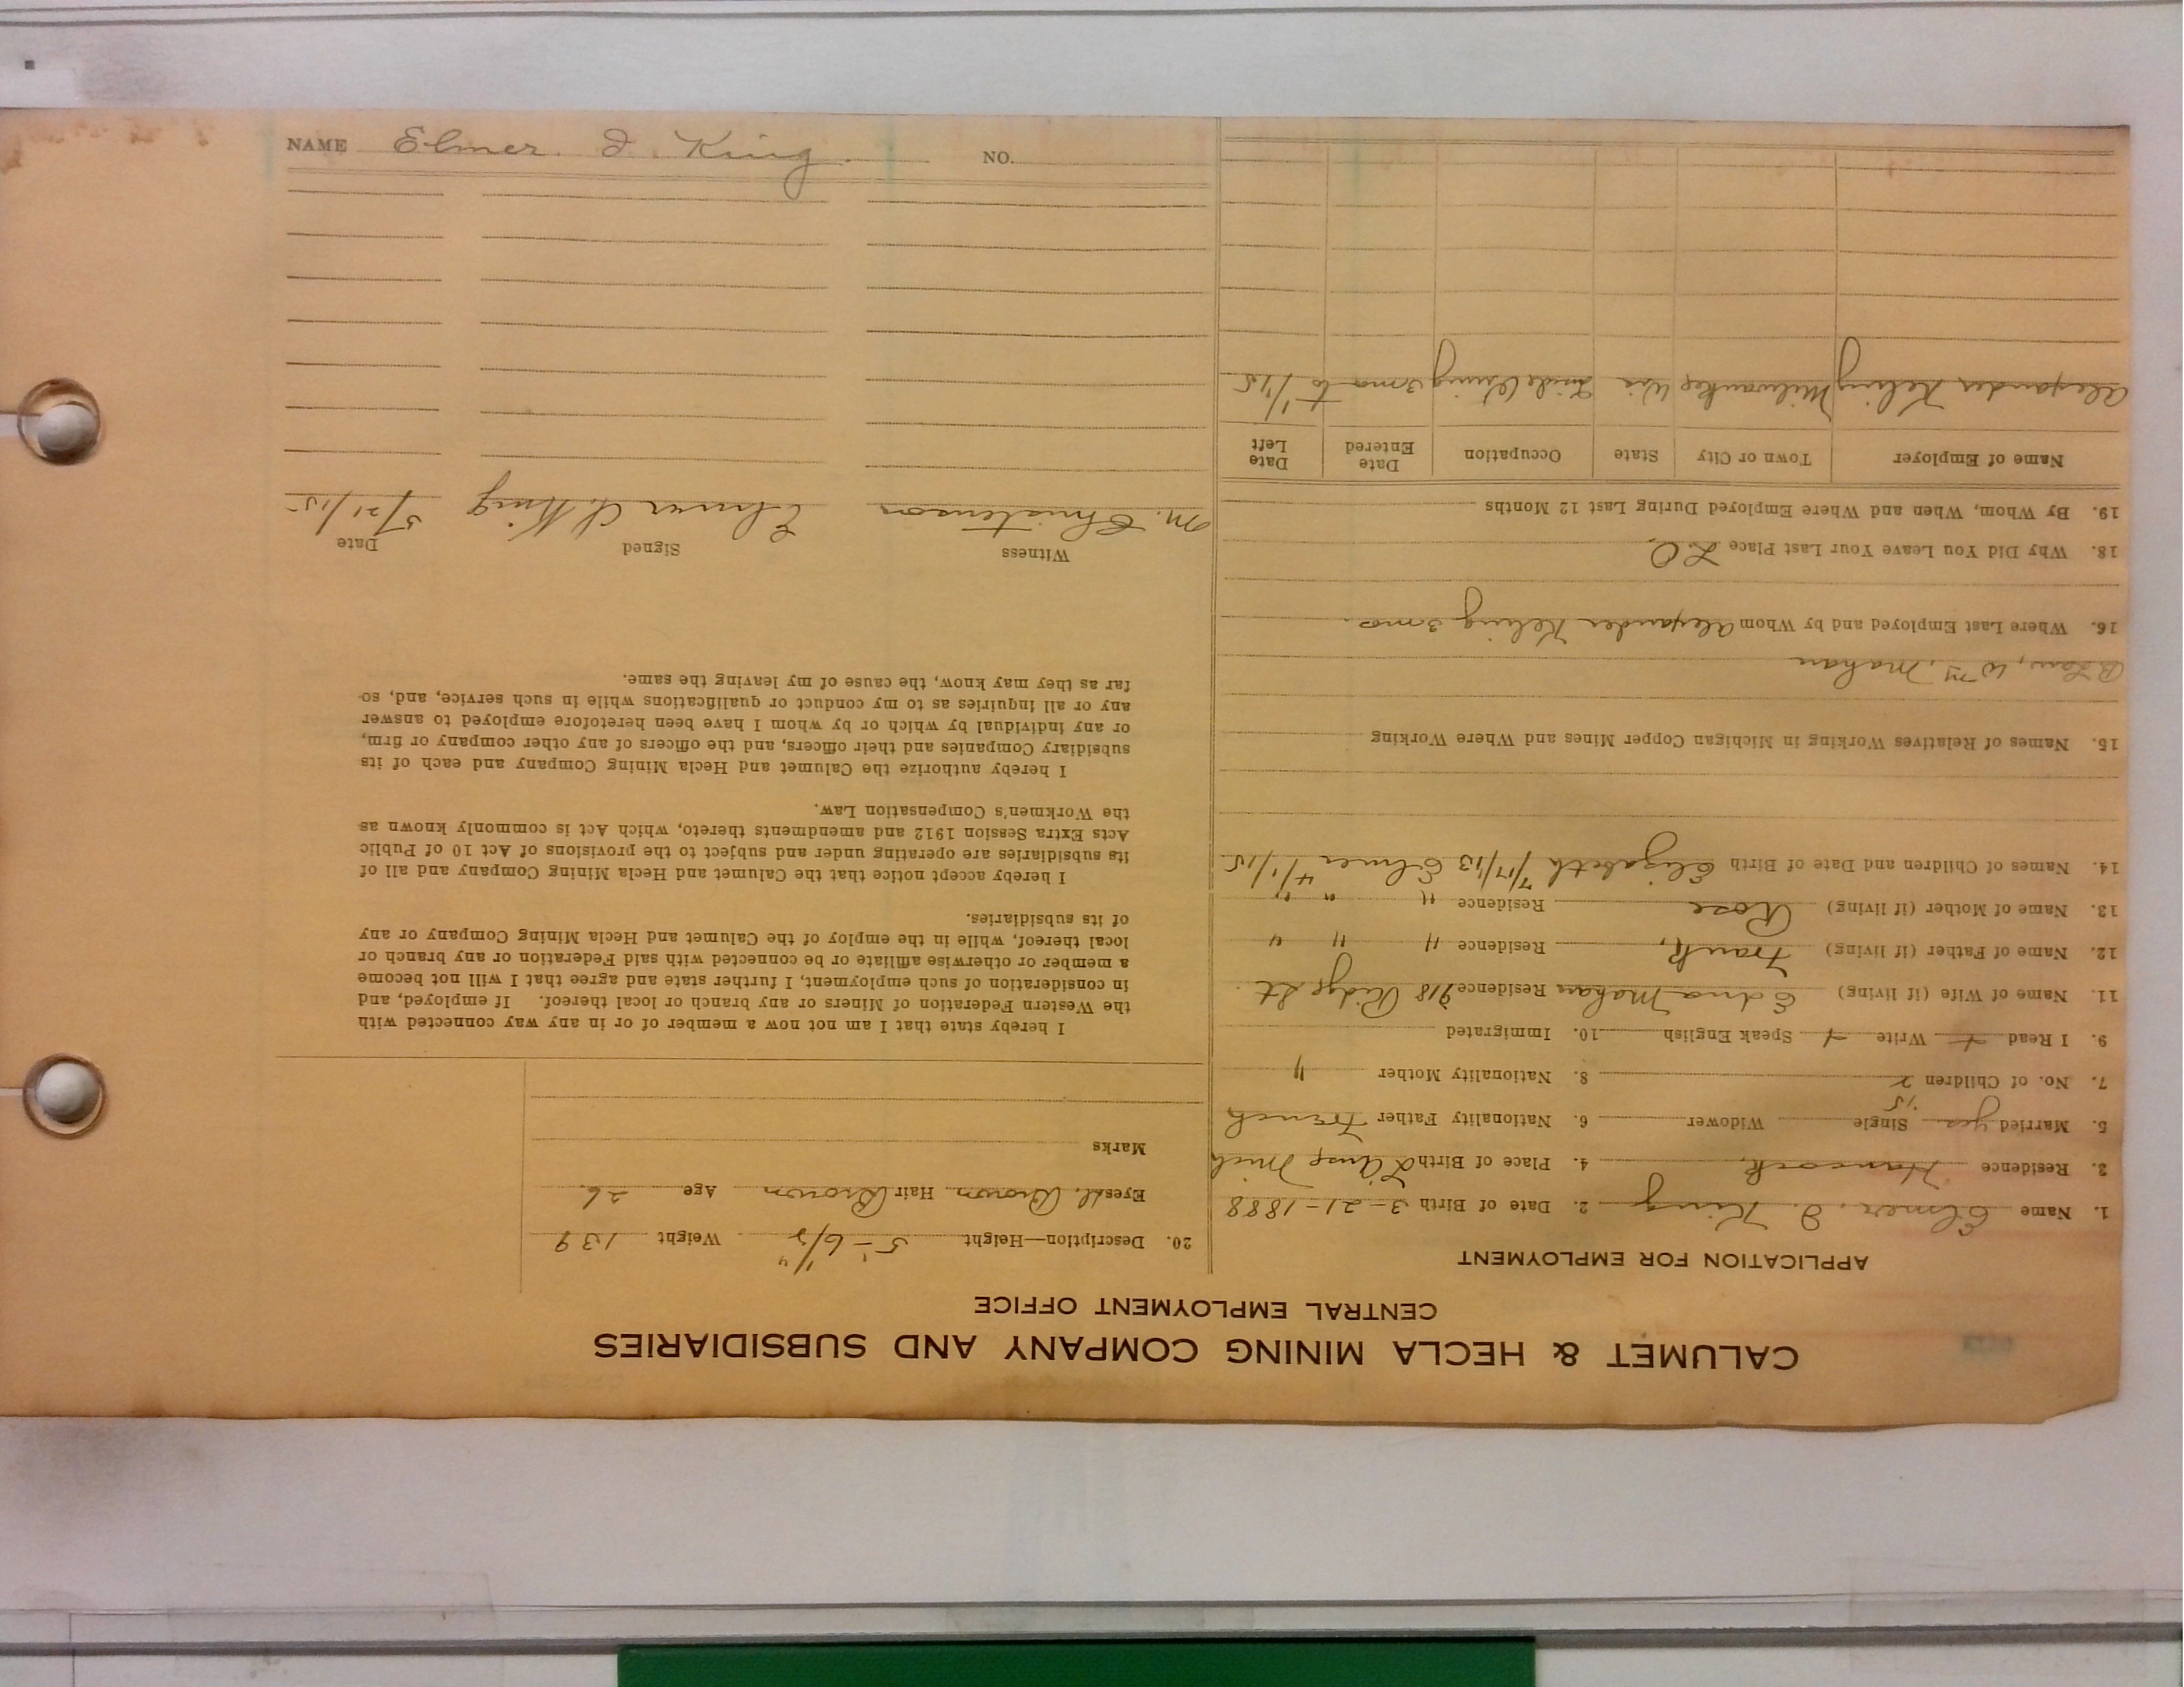 CALUMET & HECLA MINING COMPANY AND SUBSIDIARIES
CENTRAL EMPLOYMENT OFFICE
APPLICATION FOR EMPLOYMENT
1. Name Elmer. J. King 2. Date of Birth 3-21-1888
3. Residence Hancock, 4. Place of Birth L'Anse Mich
5. Married yes Single Widower 6. Nationality Father French
7. No. of Children 2 8. Nationality Mother "
9. I Read + Write + Speak English 10. Immigrated
11. Name of Wife (if living) Edna Mahan Residence 918 Ridge St.
12. Name of Father (if living) Frank, Residence " " "
13. Name of Mother (if living) Rose Residence " " "
14. Names of Children and Date of Birth Elizabeth 7/17/13 Elmer 4/1/15
15. Names of Relatives Working in Michigan Copper Mines and Where Working
B Law, Wm Mahan
16. Where Last Employed and by Whom Alexander Keling 3 mos.
18. Why Did You Leave Your Last Place L.O.
19. By Whom, When and Where Employed During Last 12 Months
Name of Employer Town or City State Occupation Date Entered Date Left
Alexander Keling Milwaukee Wis 3 mo to 1/1/15
20. Description—Height 5'-6 1/2" Weight 139
Eyes Brown Hair Brown Age 26
Marks
I hereby state that I am not now a member of or in any way connected with
the Western Federation of Miners or any branch or local thereof. If employed, and
in consideration of such employment, I further state and agree that I will not become
a member or otherwise affiliate or be connected with said Federation or any branch or
local thereof, while in the employ of the Calumet and Hecla Mining Company or any
of its subsidiaries.
I hereby accept notice that the Calumet and Hecla Mining Company and all of
its subsidiaries are operating under and subject to the provisions of Act 10 of Public
Acts Extra Session 1912 and amendments thereto, which Act is commonly known as
the Workmen's Compensation Law.
I hereby authorize the Calumet and Hecla Mining Company and each of its
subsidiary Companies and their officers, and the officers of any other company or firm,
or any individual by which or by whom I have been heretofore employed to answer
any or all inquiries as to my conduct or qualifications while in such service, and, so
far as they may know, the cause of my leaving the same.
Witness Signed Date
M. Christenson Elmer J. King 5/21/15
NAME Elmer. J. King. NO.